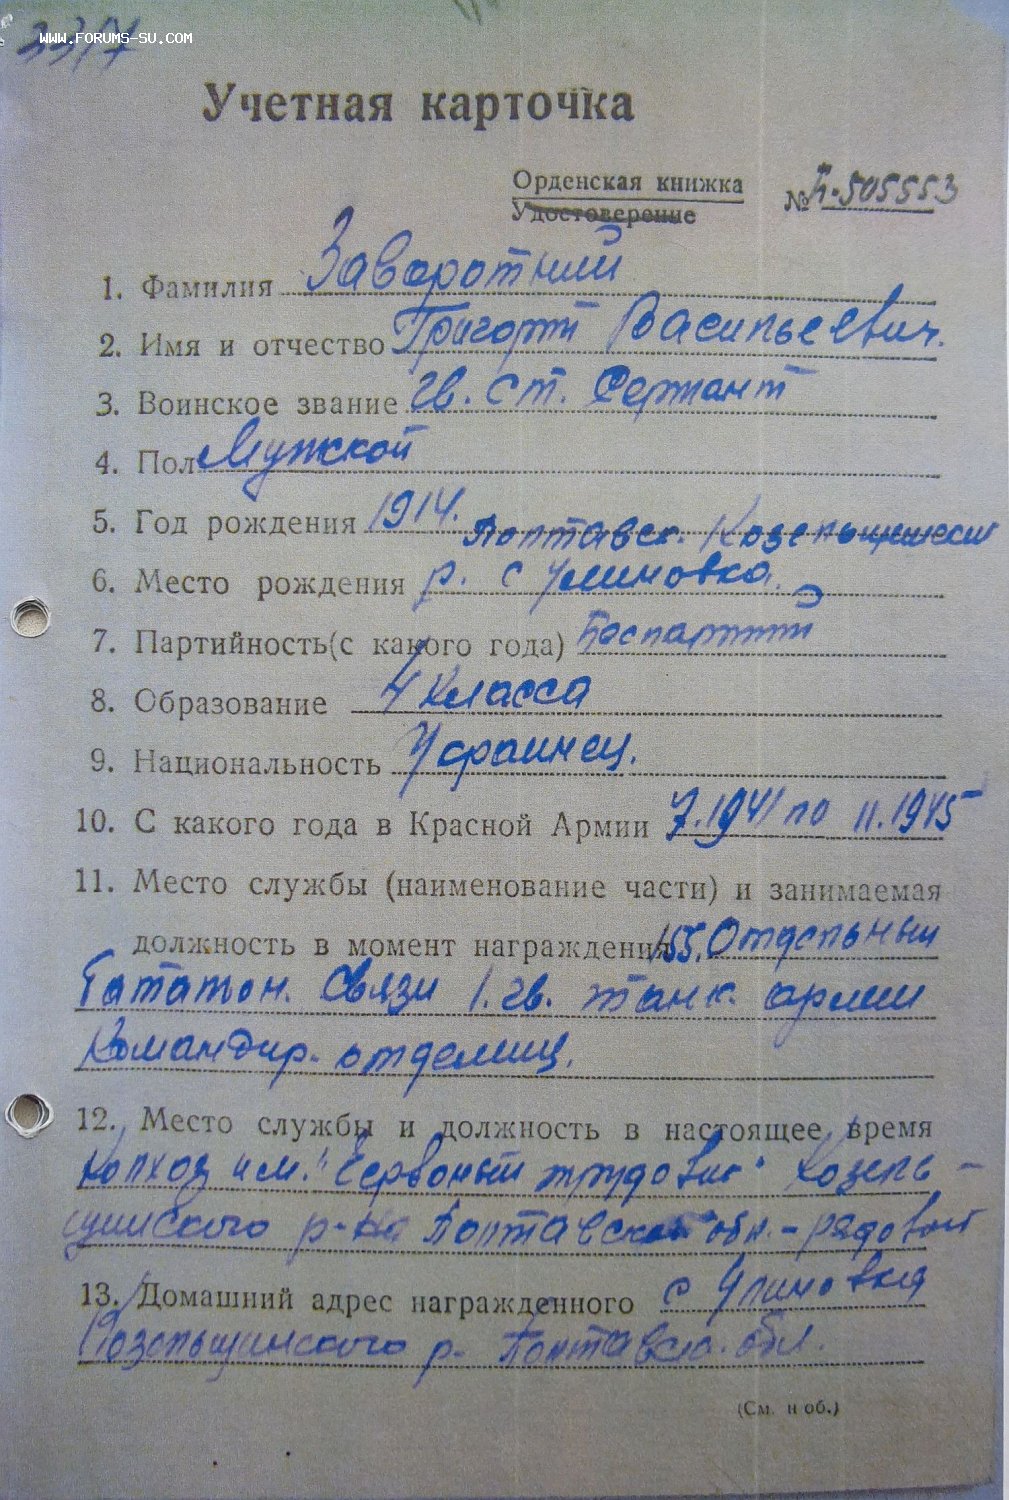 3317
WWW.FORUMS-SU.COM
Учетная карточка
Орденская книжка
Удостоверение
№ Л-505553
1. Фамилия Заворотний
2. Имя и отчество Григорий Васильевич.
3. Воинское звание гв. ст. Сержант
4. Пол Мужской
5. Год рождения 1914.
Полтавск. Козельщинский
6. Место рождения р. с
7. Партийность (с какого года) Беспартий
8. Образование 4 класса
9. Национальность Украинец.
10. С какого года в Красной Армии 7.1941 по 11.1945
11. Место службы (наименование части) и занимаемая
должность в момент награждения 155, Отдельный
Батальон. Связи 1. гв. танк. армии
Командир. отделен.
12. Место службы и должность в настоящее время
Колхоз им. "Червоный трудовик" Козель-
щинского р-на Полтавской обл. - рядовой
13. Домашний адрес награжденного с
Козельщинского р. Полтавска. обл.
(См. н об.)